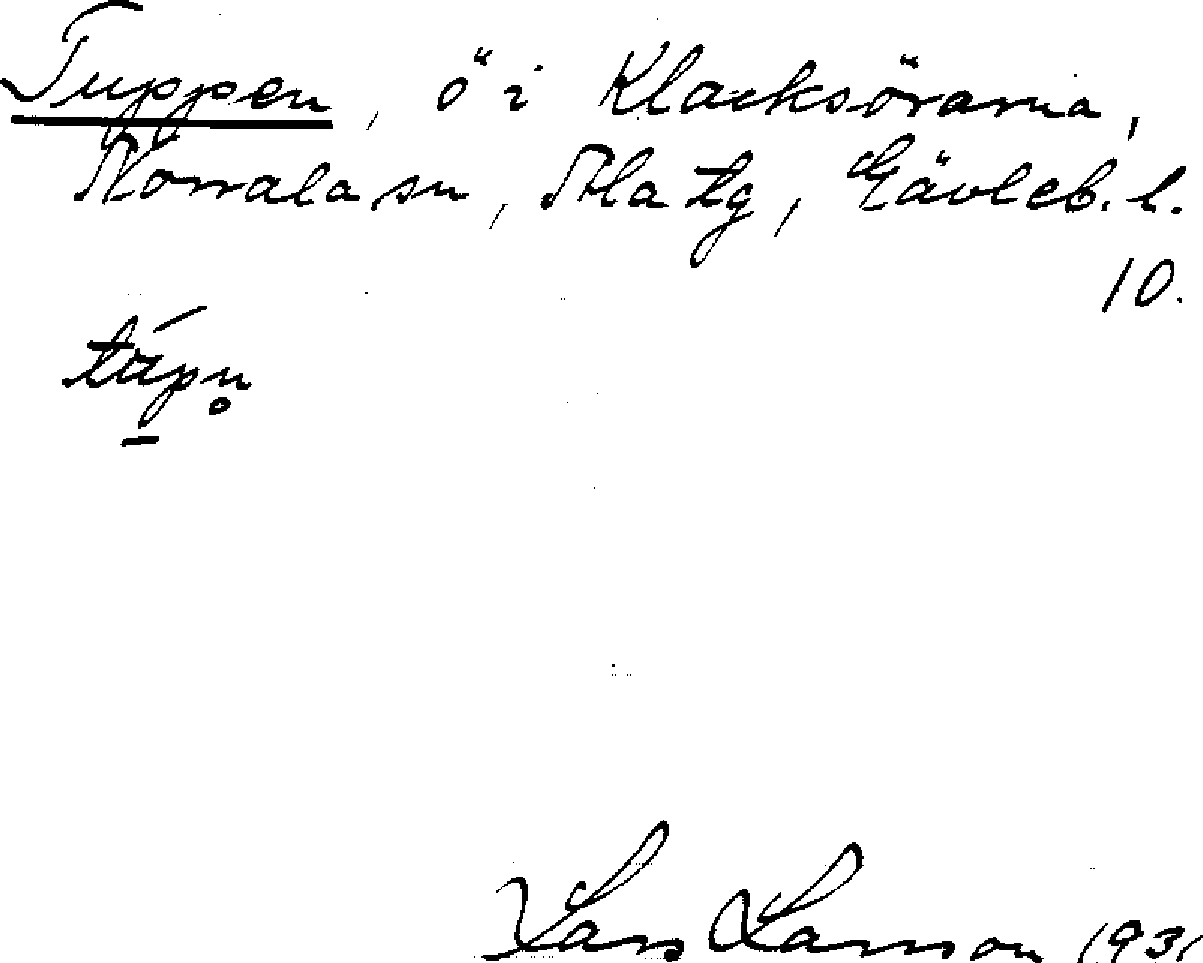 Tuppen, ö i Klacksörarna,
Norrala sn, Ala tg, Gävleb. l.
10.
Lars Larsson 1931